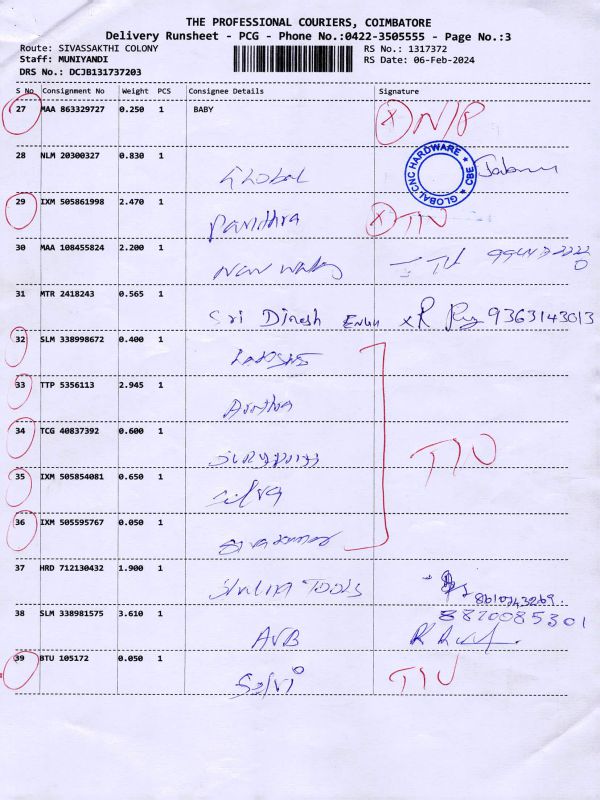 THE PROFESSIONAL COURIERS, COIMBATORE
Delivery Runsheet - PCG - Phone No.:0422-3505555 - Page No.:3
Route: SIVASSAKTHI COLONY RS No.: 1317372
Staff: MUNIYANDI RS Date: 06-Feb-2024
DRS No.: DCJB131737203
S No Consignment No Weight PCS Consignee Details Signature
27 MAA 863329727 0.250 1 BABY X N/P
28 NLM 20300327 0.830 1
Global GLOBAL CNC HARDWARE CBE
29 IXM 505861998 2.470 1
Pavithra X TIV
30 MAA 108455824 2.200 1
New
31 MTR 2418243 0.565 1
Sri Dinesh x R 9363143013
32 SLM 338998672 0.400 1
33 TTP 5356113 2.945 1
34 TCG 40837392 0.600 1 TIV
35 IXM 505854081 0.650 1
Silva
36 IXM 505595767 0.050 1
Sivakumar
37 HRD 712130432 1.900 1
TOOLS 8610743269
38 SLM 338981575 3.610 1 8870085301
AVB
39 BTU 105172 0.050 1 TIV
Selvi